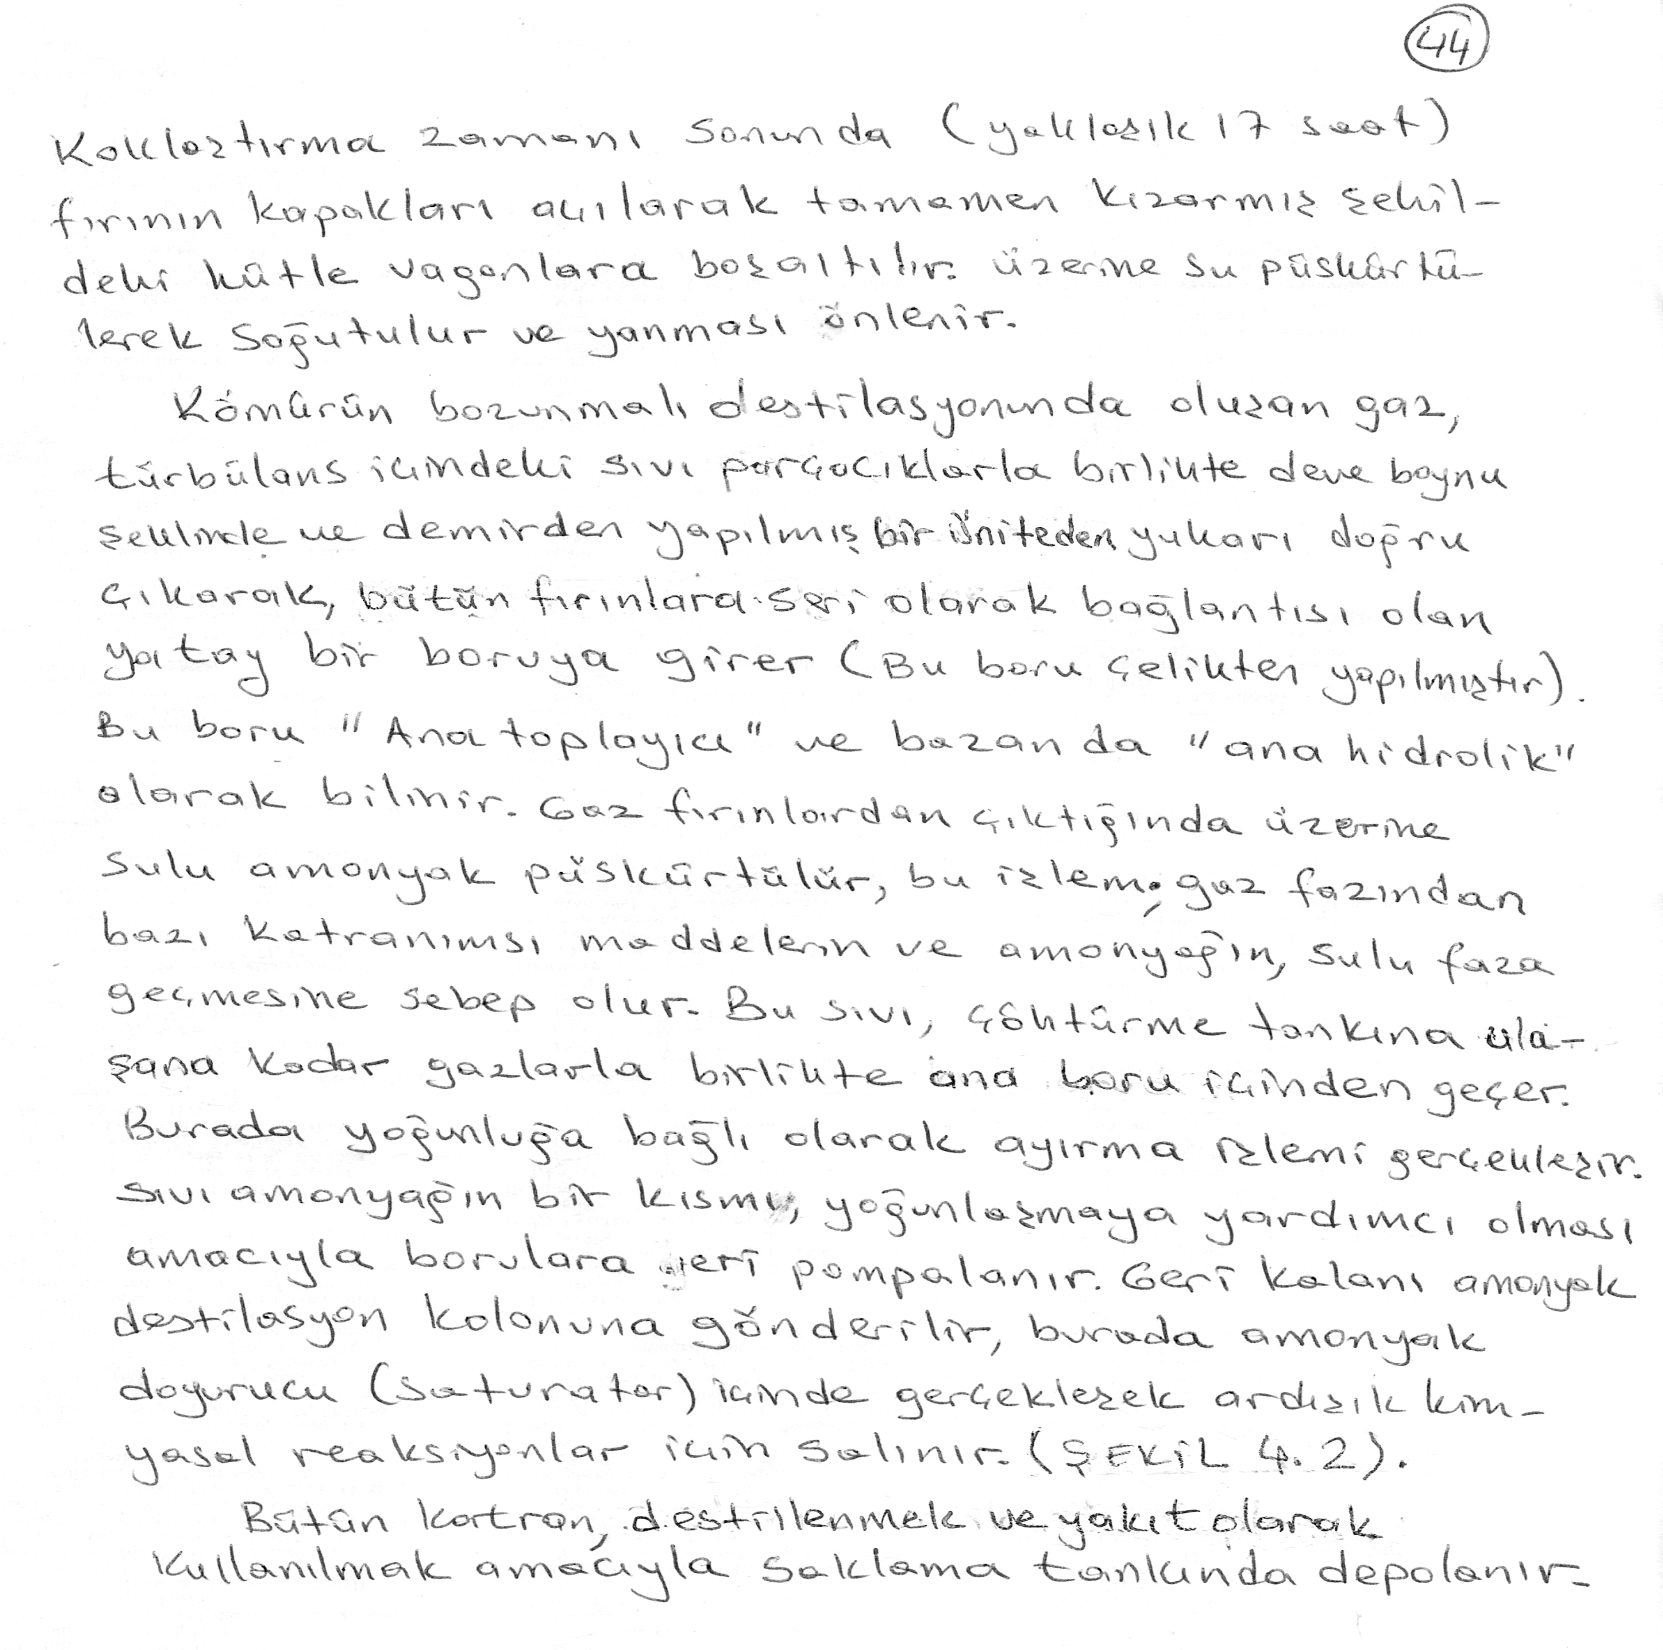 44
Koklaştırma zamanı sonunda (yaklaşık 17 saat)
fırının kapakları açılarak tamamen kızarmış şekil-
deki kütle vagonlara boşaltılır. üzerine su püskürtü-
lerek soğutulur ve yanması önlenir.
Kömürün bozunmalı destilasyonunda oluşan gaz,
türbülans içindeki sıvı parçacıklarla birlikte deve boynu
şeklinde ve demirden yapılmış bir üniteden yukarı doğru
çıkarak, bütün fırınlara seri olarak bağlantısı olan
yatay bir boruya girer (Bu boru çelikten yapılmıştır).
Bu boru "Ana toplayıcı" ve bazan da "ana hidrolik"
olarak bilinir. Gaz fırınlardan çıktığında üzerine
sulu amonyak püskürtülür, bu işlem; gaz fazından
bazı katranımsı maddelerin ve amonyağın, sulu faza
geçmesine sebep olur. Bu sıvı, çöktürme tankına ula-
şana kadar gazlarla birlikte ana boru içinden geçer.
Burada yoğunluğa bağlı olarak ayırma işlemi gerçekleşir.
Sıvı amonyağın bir kısmı, yoğunlaşmaya yardımcı olması
amacıyla borulara geri pompalanır. Geri kalanı amonyak
destilasyon kolonuna gönderilir, burada amonyak
doyurucu (saturator) içinde gerçekleşek ardışık kim-
yasal reaksiyonlar için salınır. (ŞEKİL 4.2).
Bütün katran, destilenmek ve yakıt olarak
kullanılmak amacıyla saklama tankında depolanır.